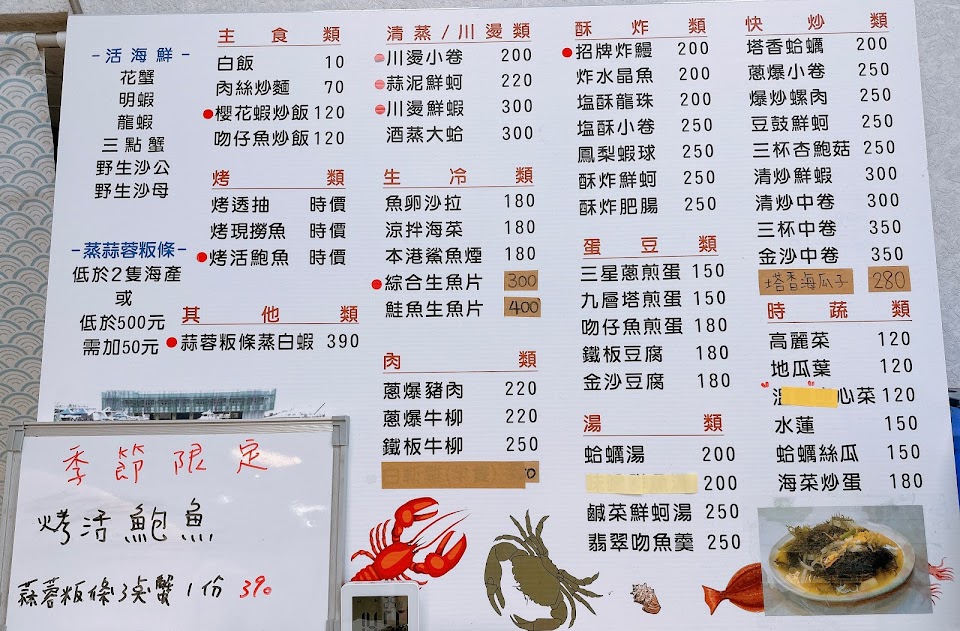 -活海鮮-
花蟹
明蝦
龍蝦
三點蟹
野生沙公
野生沙母
-蒸蒜蓉粄條-
低於2隻海產
或
低於500元
需加50元
主食類
白飯 10
肉絲炒麵 70
櫻花蝦炒飯 120
吻仔魚炒飯 120
烤類
烤透抽 時價
烤現撈魚 時價
烤活鮑魚 時價
其他類
蒜蓉粄條蒸白蝦 390
清蒸/川燙類
川燙小卷 200
蒜泥鮮蚵 220
川燙鮮蝦 300
酒蒸大蛤 300
生冷類
魚卵沙拉 180
涼拌海菜 180
本港鯊魚煙 180
綜合生魚片 300
鮭魚生魚片 400
肉類
蔥爆豬肉 220
蔥爆牛柳 220
鐵板牛柳 250
酥炸類
招牌炸鰻 200
炸水晶魚 200
塩酥龍珠 200
塩酥小卷 250
鳳梨蝦球 250
酥炸鮮蚵 250
酥炸肥腸 250
蛋豆類
三星蔥煎蛋 150
九層塔煎蛋 150
吻仔魚煎蛋 180
鐵板豆腐 180
金沙豆腐 180
湯類
蛤蠣湯 200
200
鹹菜鮮蚵湯 250
翡翠吻魚羹 250
快炒類
塔香蛤蠣 200
蔥爆小卷 250
爆炒螺肉 250
豆鼓鮮蚵 250
三杯杏鮑菇 250
清炒鮮蝦 300
清炒中卷 300
三杯中卷 350
金沙中卷 350
塔香海瓜子 280
時蔬類
高麗菜 120
地瓜葉 120
心菜 120
水蓮 150
蛤蠣絲瓜 150
海菜炒蛋 180
季節限定
烤活鮑魚
蒜蓉粄條3點蟹1份 390